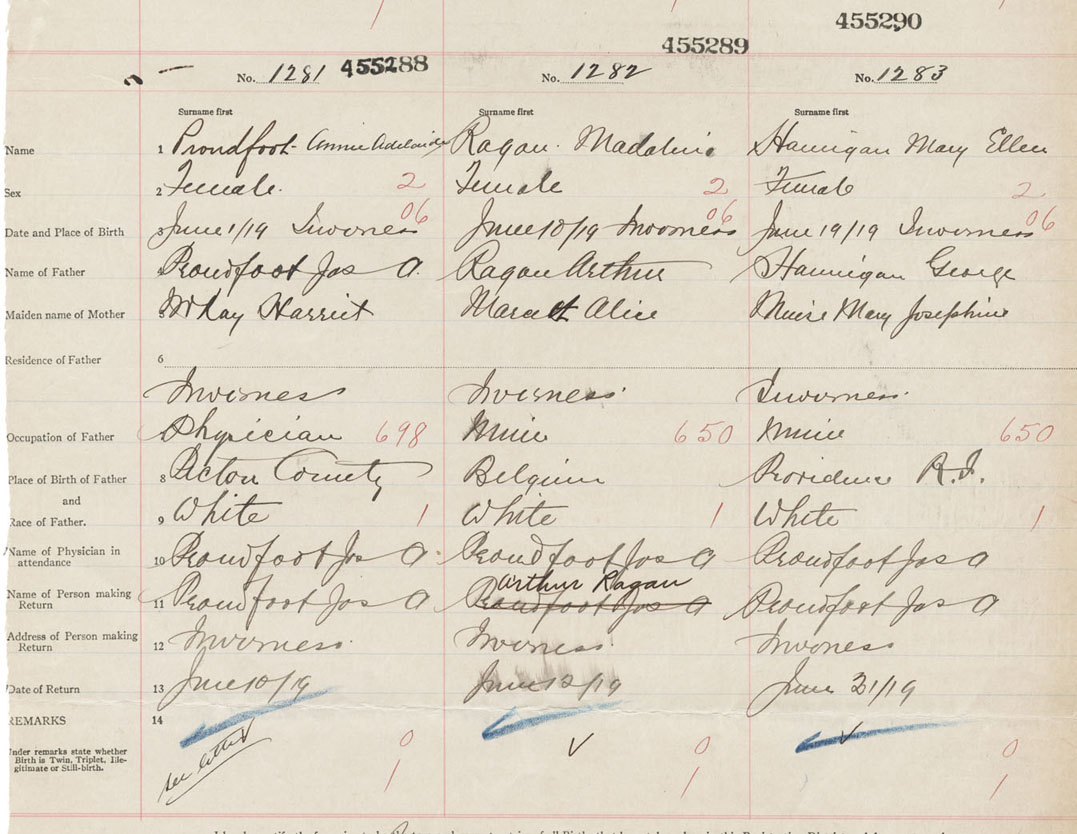 455290
455289
No. 1281 455288 No. 1282 No. 1283
Surname first Surname first Surname first
Name 1 Proudfoot Annie Adelaide Ragan Madaline Hannigan Mary Ellen
Sex 2 Female. 2 Female 2 Female 2
06 06 06
Date and Place of Birth 3 June 1/19 Inverness June 10/19 Inverness June 19/19 Inverness
Name of Father 4 Proudfoot Jas A. Ragan Arthur Hannigan George
Maiden name of Mother 5 McKay Harriet Alice Muise Mary Josephine
Residence of Father 6
Inverness Inverness Inverness
Occupation of Father Physician 698 Miner 650 Miner 650
Place of Birth of Father 8 Pictou County Belgium Providence R.I.
and
Race of Father. 9 White 1 White 1 White 1
Name of Physician in
attendance 10 Proudfoot Jas A. Proudfoot Jas A Proudfoot Jas A
Arthur Ragan
Name of Person making
Return 11 Proudfoot Jas A Proudfoot Jas A Proudfoot Jas A
Address of Person making
Return 12 Inverness Inverness Inverness
Date of Return 13 June 10/19 June 12/19 June 21/19
REMARKS 14
Under remarks state whether
Birth is Twin, Triplet, Ille-
gitimate or Still-birth.
see letter
0 0 0
1 1 1